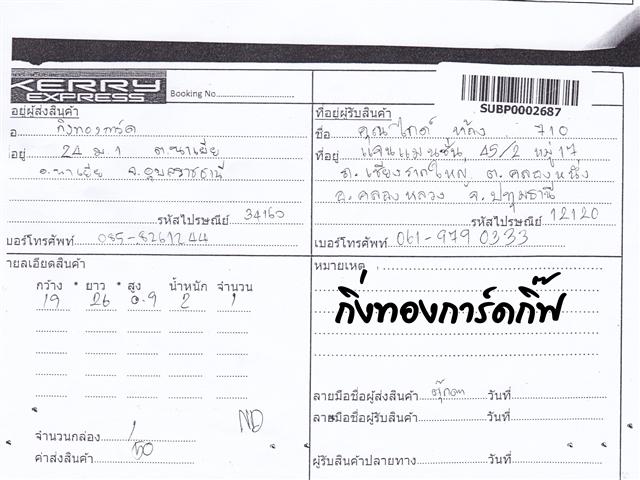 KERRY
EXPRESS
Booking No
SUBP0002687
อยู่ผู้ส่งสินค้า
อ กิ่งทองการ์ด
อยู่ 24 ม.1 ต.นาเยีย
อ.นาเยีย จ.อุบลราชธานี
รหัสไปรษณีย์ 34160
บอร์โทรศัพท์ 085-8261244
ที่อยู่ผู้รับสินค้า
ชื่อ คุณไกด์ ห้อง 710
ที่อยู่ แจ่มแมนชั่น 45/2 หมู่ 17
ถ. เชียงรากใหญ่ ต. คลองหนึ่ง
อ. คลองหลวง จ. ปทุมธานี
รหัสไปรษณีย์ 12120
เบอร์โทรศัพท์ 061-979 0333
ายลเอียดสินค้า
กว้าง * ยาว * สูง น้ำหนัก จำนวน
19 26 0.9 2 1
ND
จำนวนกล่อง 1
ค่าส่งสินค้า 50
หมายเหตุ
กิ่งทองการ์ดกิ๊ฟ
ลายมือชื่อผู้ส่งสินค้า ตุ๊กตา วันที่
ลายมือชื่อผู้รับสินค้า วันที่
ผู้รับสินค้าปลายทาง วันที่